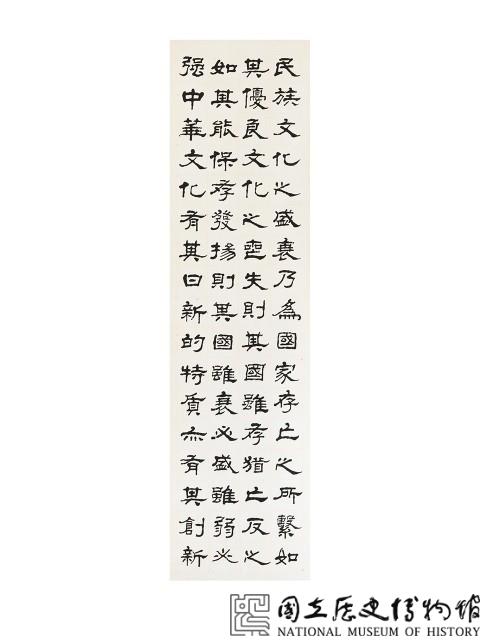 民族文化之盛衰乃為國家存亡之所繫如
其優良文化之喪失則其國雖存猶亡反之
如其能保存發揚則其國雖衰必盛雖弱必
强中華文化有其日新的特質亦有其創新
國立歷史博物館
NATIONAL MUSEUM OF HISTORY